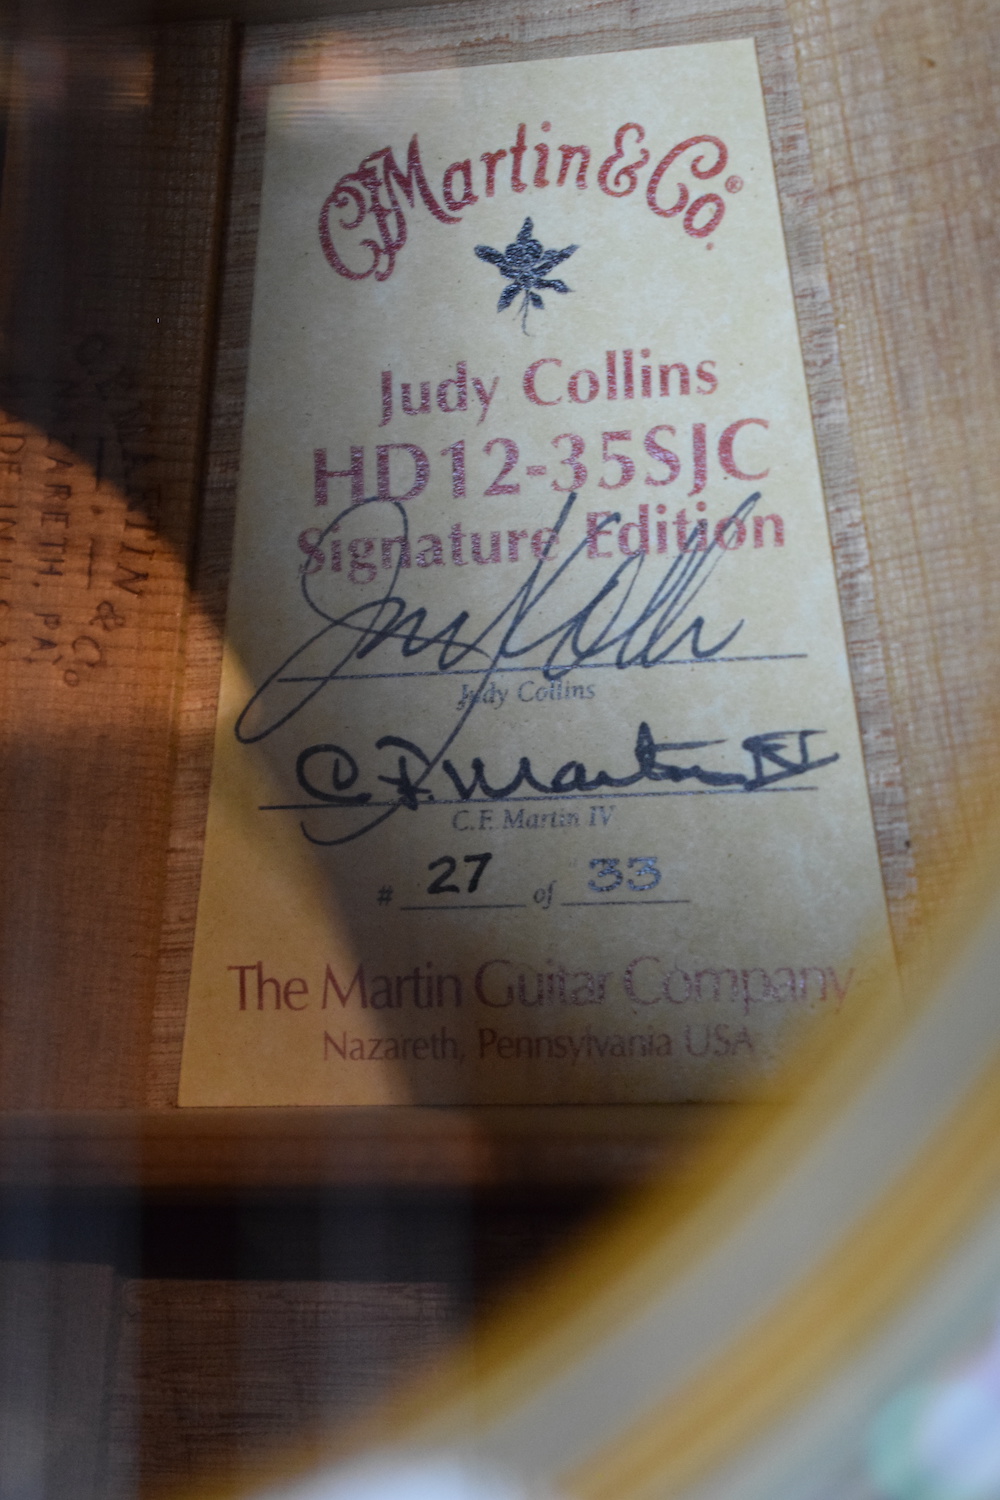 CF Martin & Co.®
Judy Collins
HD12-35SJC
Signature Edition
Judy Collins
Judy Collins
C.F. Martin IV
C.F. Martin IV
# 27 of 33
The Martin Guitar Company
Nazareth, Pennsylvania USA
MARTIN & Co
NAZARETH, PA.